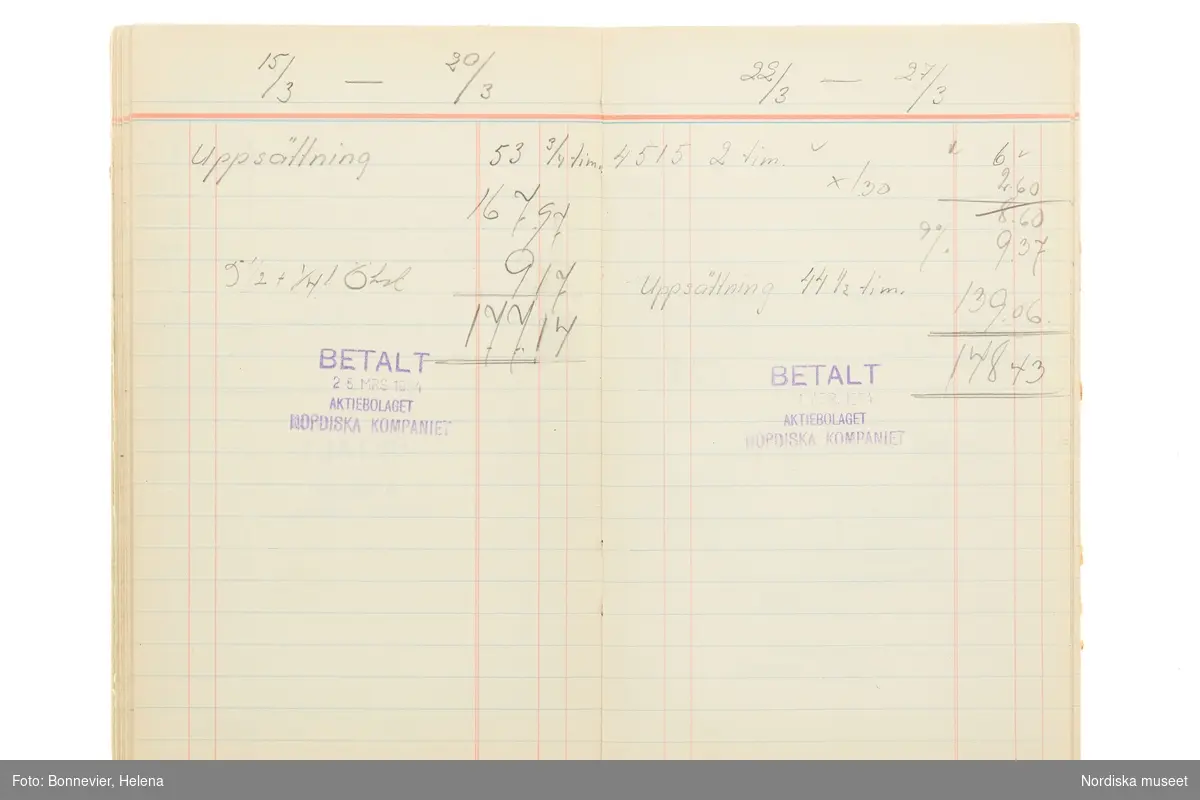 15/3 — 20/3
Uppsättning 53 3/4 tim.
167.97
9 17
177.14
BETALT
25 MRS 1954
AKTIEBOLAGET
NORDISKA KOMPANIET
22/3 — 27/3
4515 2 tim. 6
x 1.30 2.60
8.60
9% 9.37
Uppsättning 44 1/2 tim. 139.06.
148 43
BETALT
AKTIEBOLAGET
NORDISKA KOMPANIET
Foto: Bonnevier, Helena
Nordiska museet